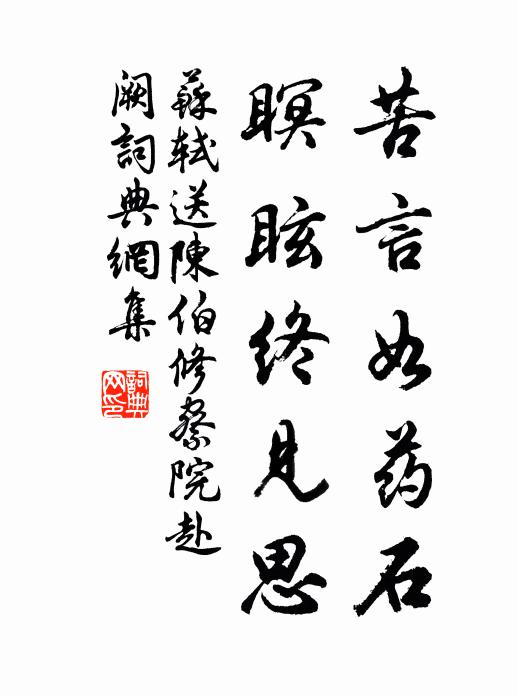 苦言如药石
瞑眩终见思
蘇軾送陳伯修察院赴
阙詞典網集
詞典网印